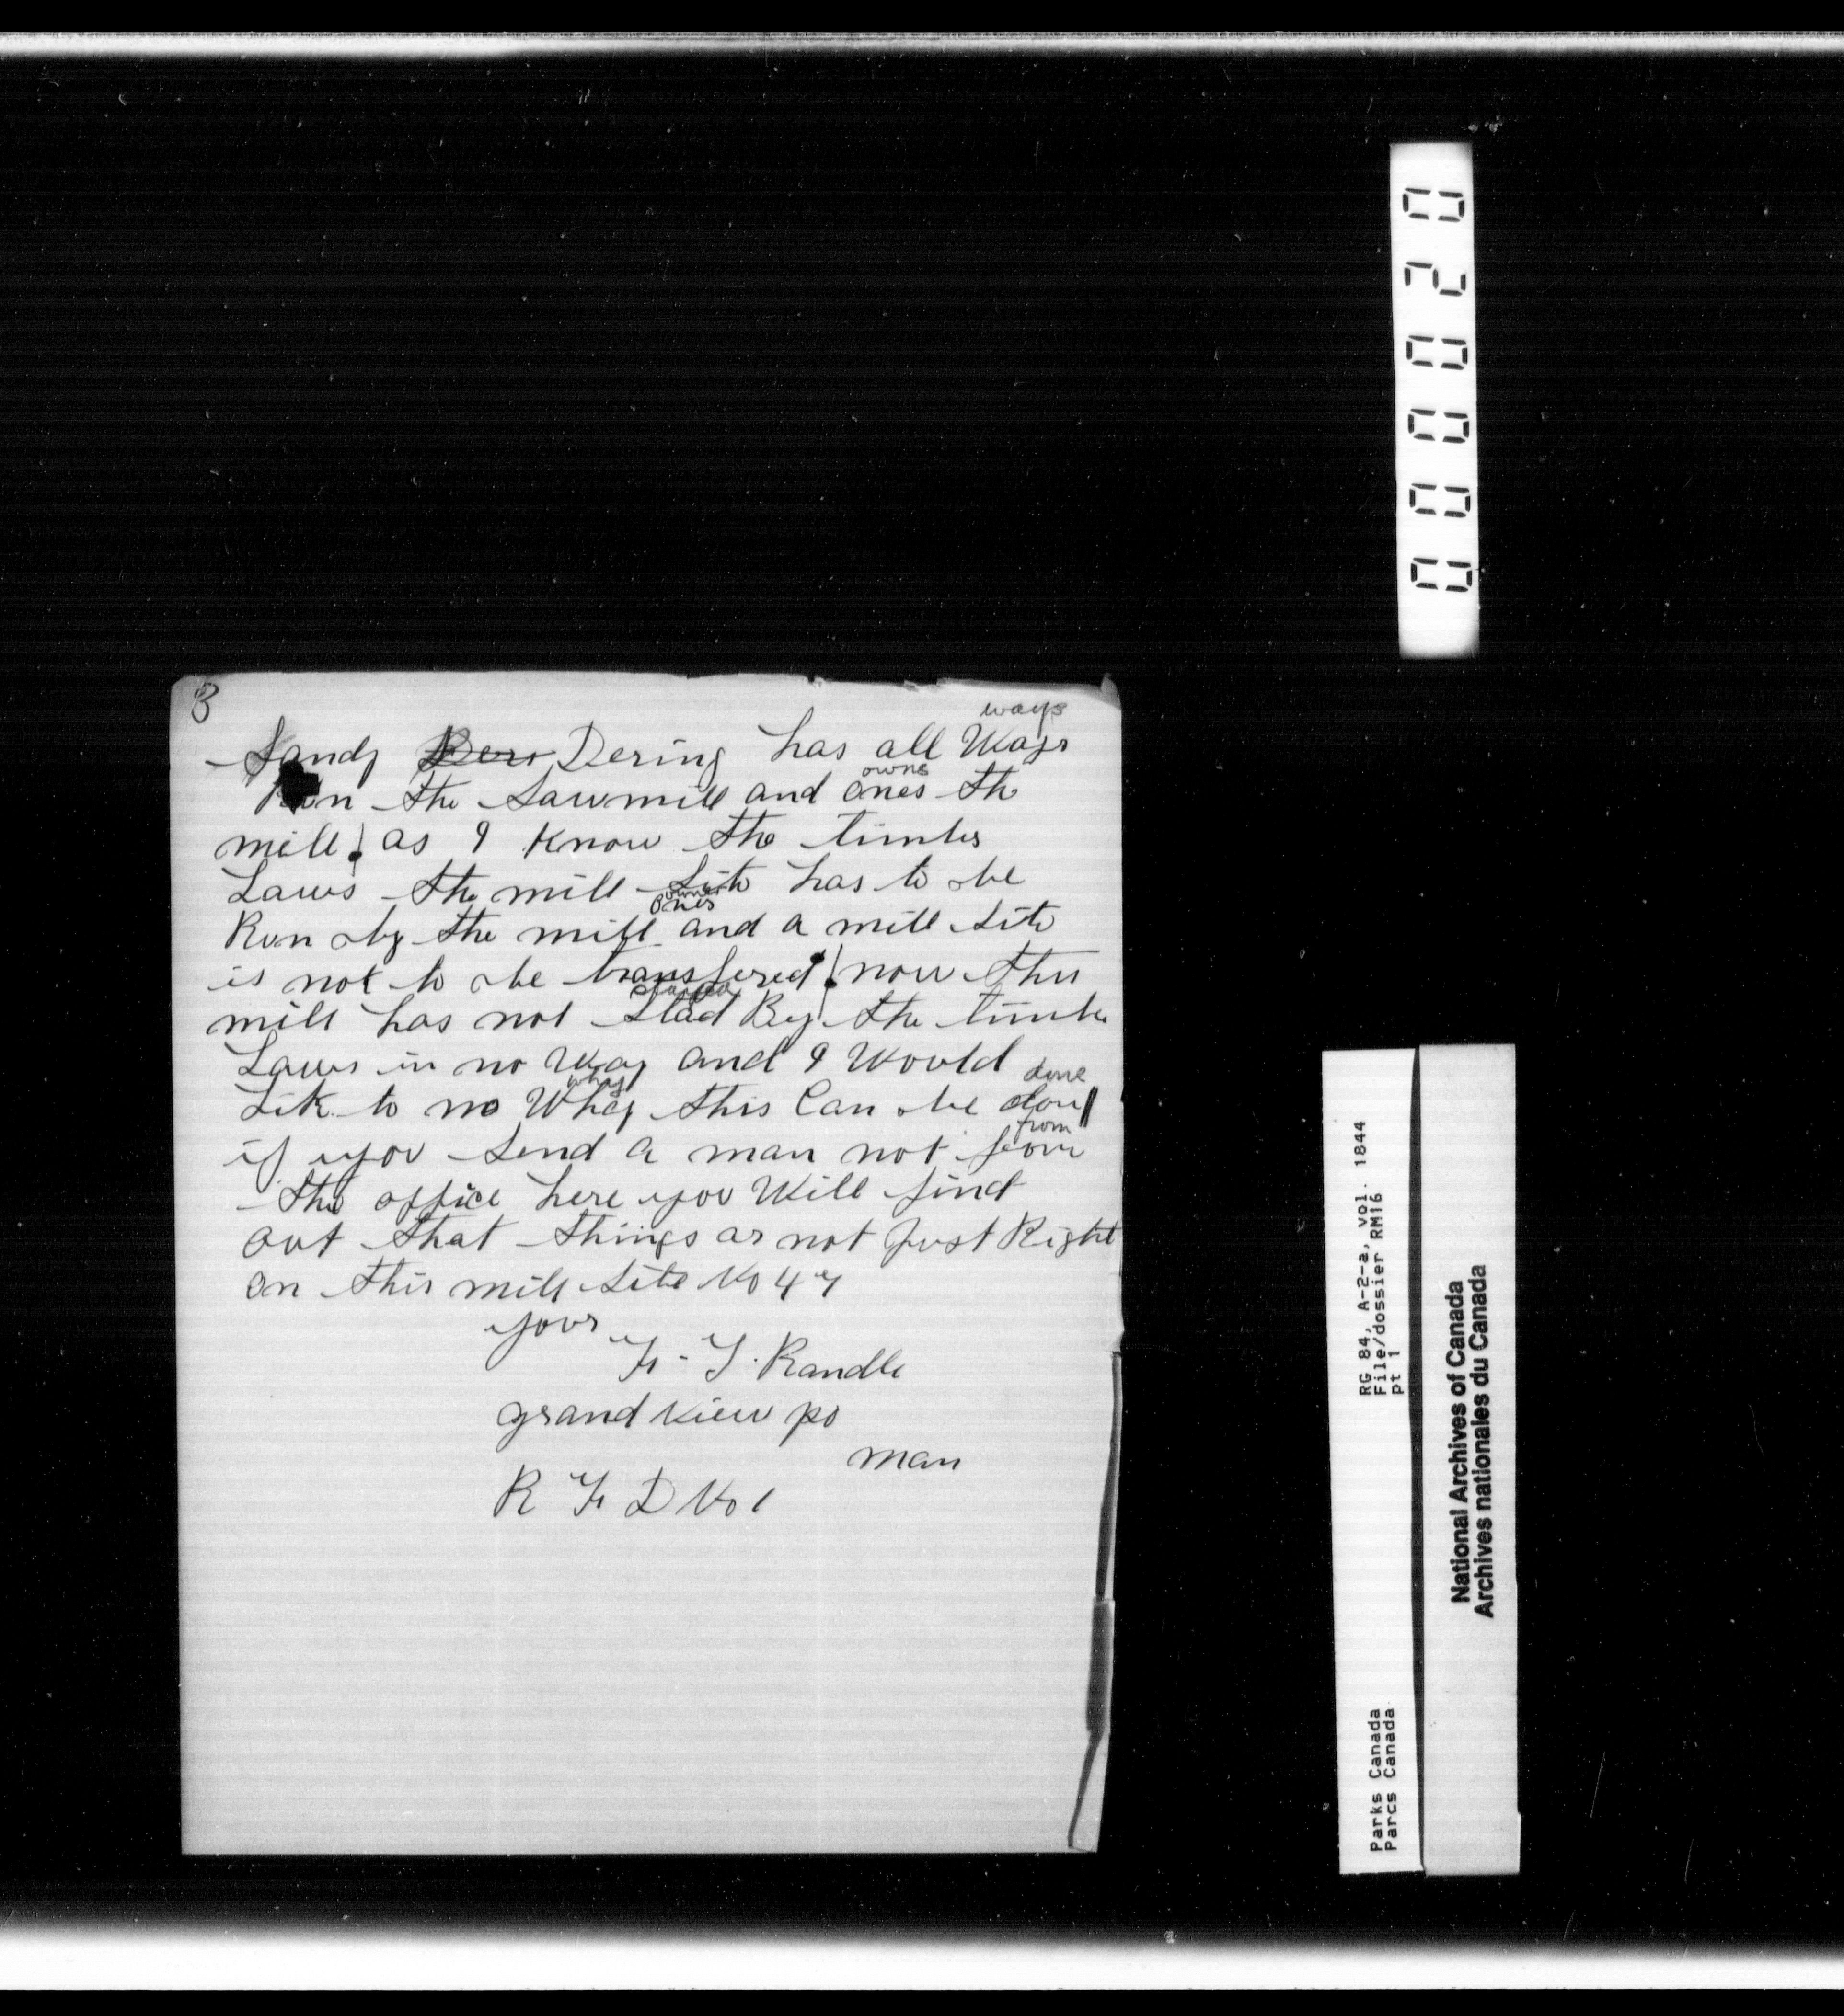 3
ways
Sandy Dering has all Ways
owns
Run the Sawmill and ones the
mill! as I Know the timber
Laws the mill Site has to be
owner
ones
Run by the mill and a mill Site
is not to be transfered! now this
stayed
mill has not Stad By the timber
Laws in no Way and I Would
why done
Like to no Whey this Can be don
from
if you Send a man not from
the office here you Will find
out that things ar not Just Right
on this mill Site No 47
yours
F. T. Randle
grand View po
man
R F D No 1
000020
RG 84, A-2-a, vol. 1844
File/dossier RM16
pt 1
Parks Canada
Parcs Canada
National Archives of Canada
Archives nationales du Canada